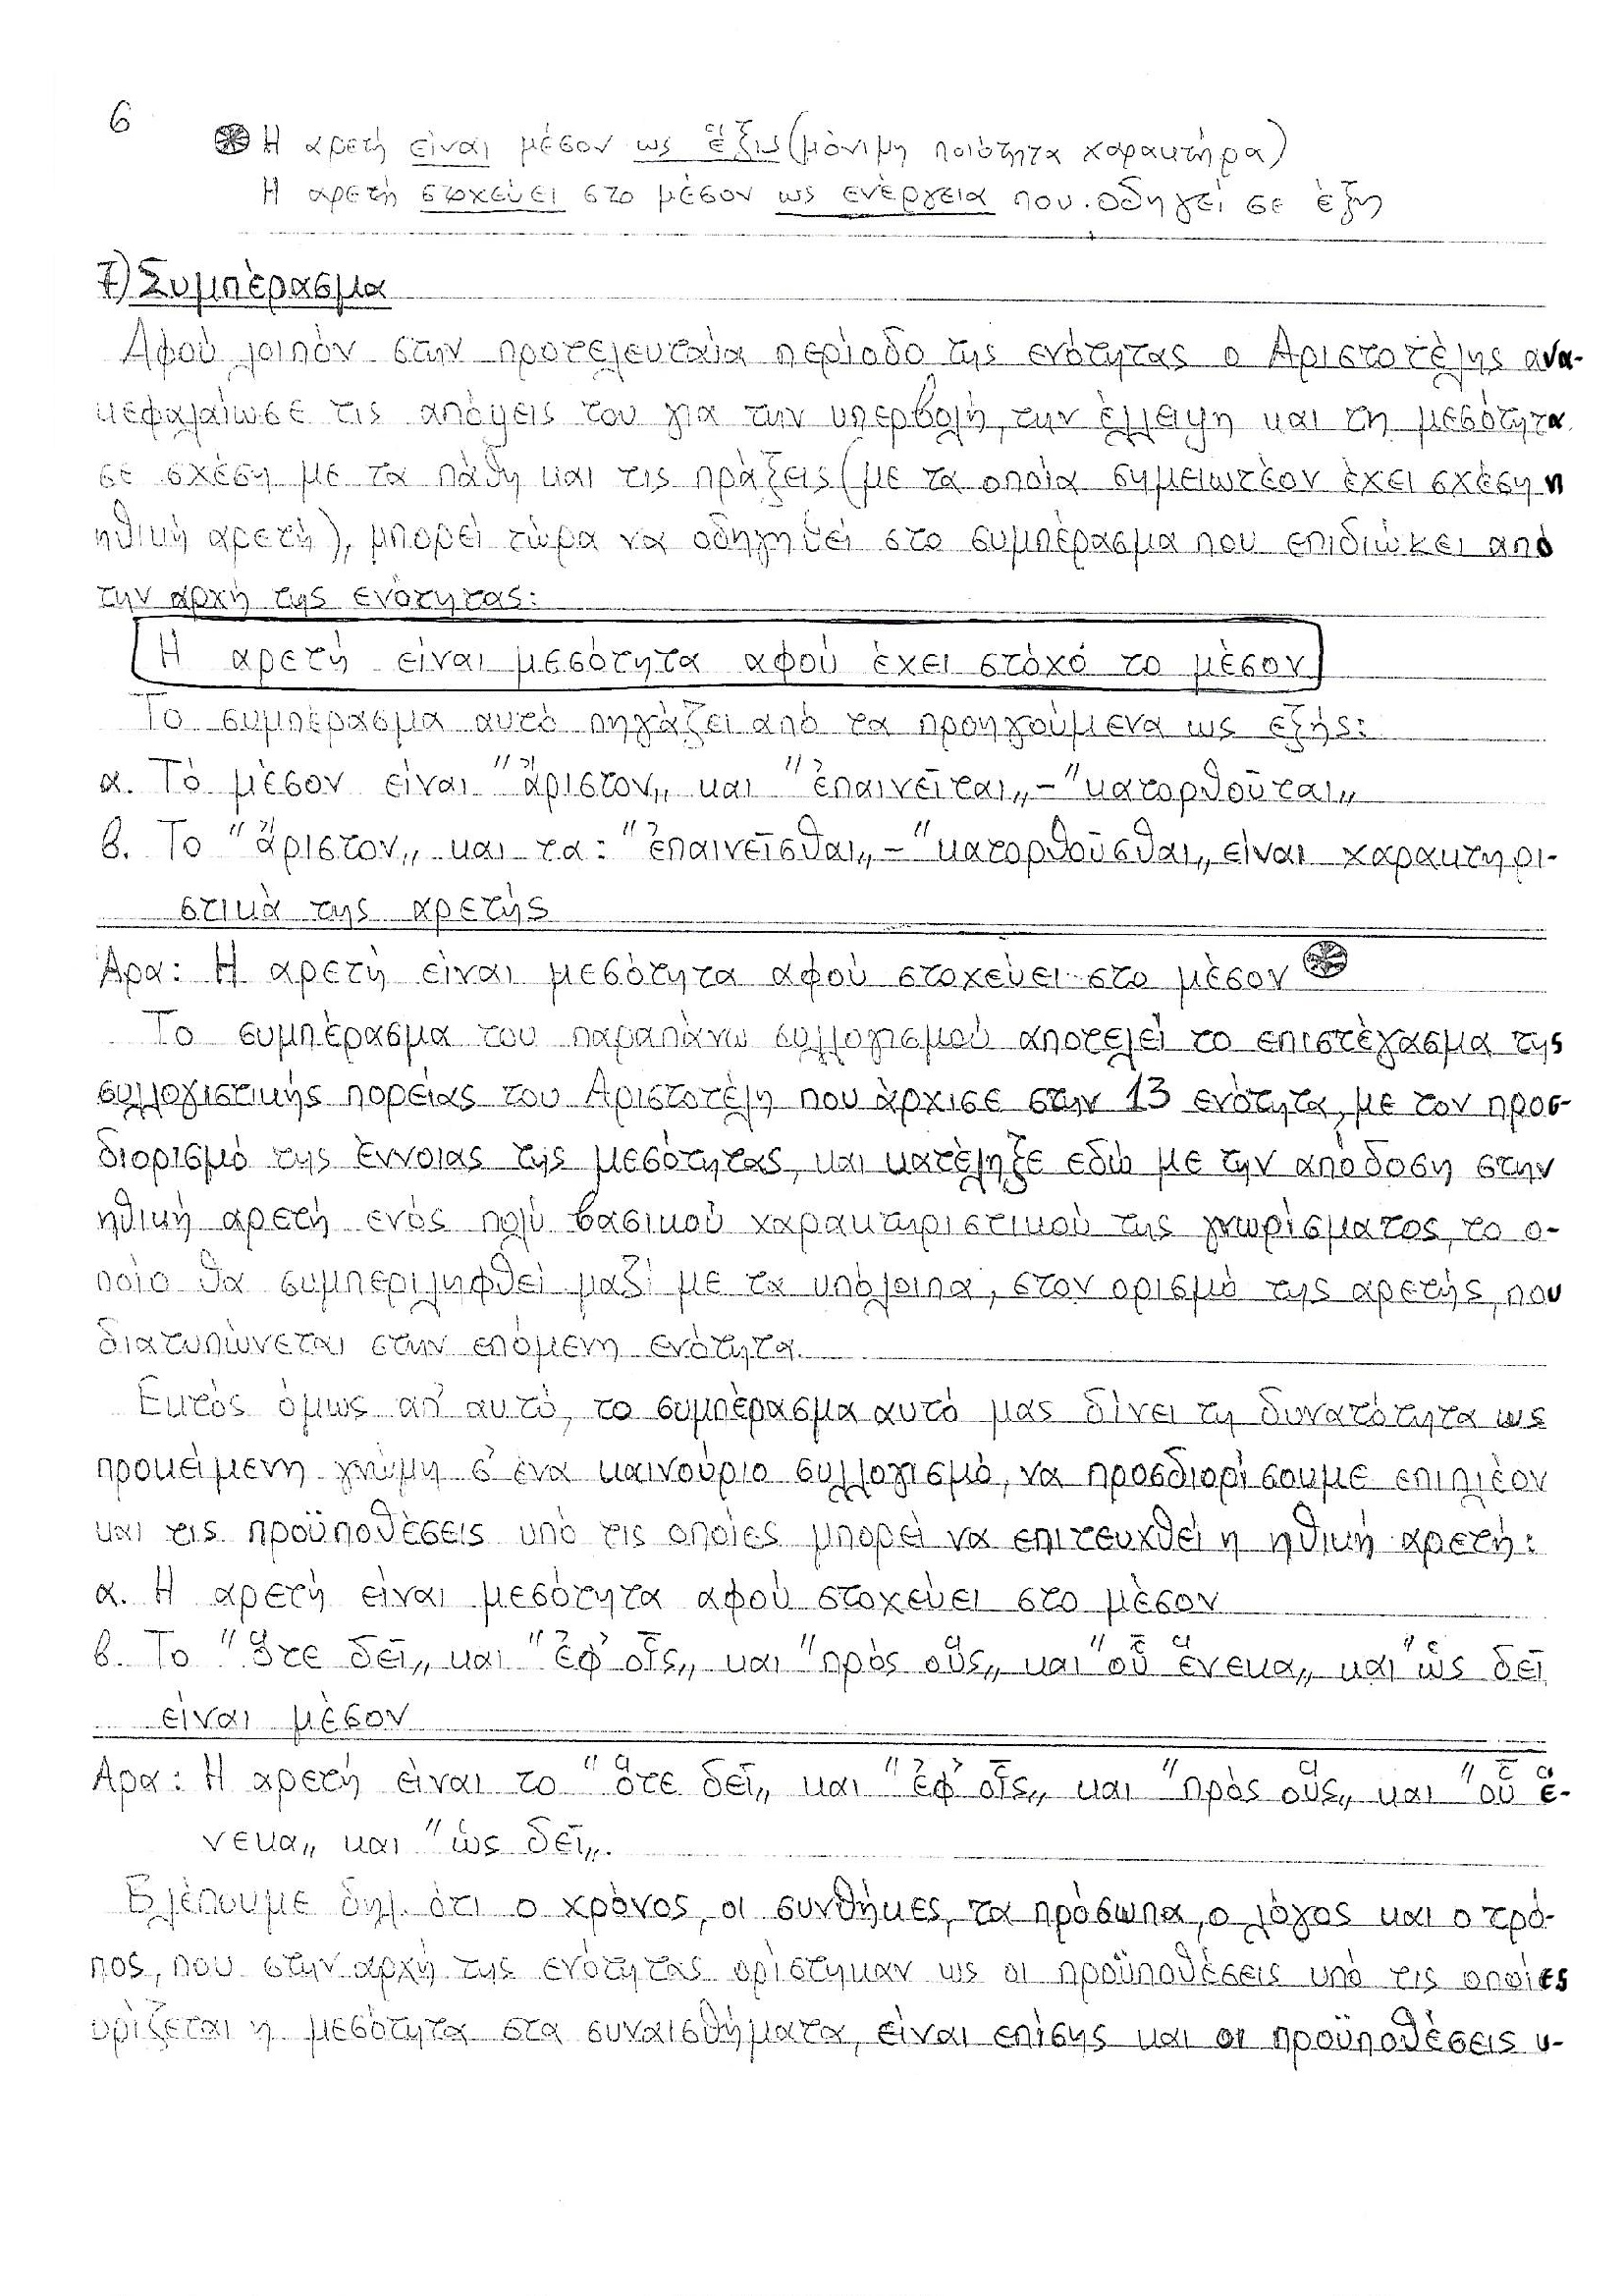 6
Η αρετή είναι μέσον ως ἕξις (μόνιμη ποιότητα χαρακτήρα)
Η αρετή στοχεύει στο μέσον ως ενέργεια που οδηγεί σε έξη
7) Συμπέρασμα
Αφού λοιπόν στην προτελευταία περίοδο της ενότητας ο Αριστοτέλης ανα-
κεφαλαίωσε τις απόψεις του για την υπερβολή, την έλλειψη και τη μεσότητα
σε σχέση με τα πάθη και τις πράξεις (με τα οποία σημειωτέον έχει σχέση η
ηθική αρετή), μπορεί τώρα να οδηγηθεί στο συμπέρασμα που επιδιώκει από
την αρχή της ενότητας:
Η αρετή είναι μεσότητα αφού έχει στόχό το μέσον
Το συμπέρασμα αυτό πηγάζει από τα προηγούμενα ως εξής:
α. Τό μέσον είναι "ἄριστον" και "ἐπαινεῖται" - "κατορθοῦται"
β. Το "ἄριστον" και τα: "ἐπαινεῖσθαι" - "κατορθοῦσθαι" είναι χαρακτηρι-
στικά της αρετής
Άρα: Η αρετή είναι μεσότητα αφού στοχεύει στο μέσον
Το συμπέρασμα του παραπάνω συλλογισμού αποτελεί το επιστέγασμα της
συλλογιστικής πορείας του Αριστοτέλη που άρχισε στην 13 ενότητα, με τον προσ-
διορισμό της έννοιας της μεσότητας, και κατέληξε εδώ με την απόδοση στην
ηθική αρετή ενός πολύ βασικού χαρακτηριστικού της γνωρίσματος, το ο-
ποίο θα συμπεριληφθεί μαζί με τα υπόλοιπα, στον ορισμό της αρετής, που
διατυπώνεται στην επόμενη ενότητα.
Εκτός όμως απ' αυτό, το συμπέρασμα αυτό μας δίνει τη δυνατότητα ως
προκείμενη γνώμη σ' ένα καινούριο συλλογισμό, να προσδιορίσουμε επιπλέον
και τις προϋποθέσεις υπό τις οποίες μπορεί να επιτευχθεί η ηθική αρετή:
α. Η αρετή είναι μεσότητα αφού στοχεύει στο μέσον
β. Το "ὅτε δεῖ" και "ἐφ' οἷς" και "πρὸς οὕς" και "οὗ ἕνεκα" και "ὡς δεῖ
είναι μέσον
Άρα: Η αρετή είναι το "ὅτε δεῖ" και "ἐφ' οἷς" και "πρὸς οὕς" και "οὗ ἕ-
νεκα" και "ὡς δεῖ".
Βλέπουμε δηλ. ότι ο χρόνος, οι συνθήκες, τα πρόσωπα, ο λόγος και ο τρό-
πος, που στην αρχή της ενότητας ορίστηκαν ως οι προϋποθέσεις υπό τις οποίες
ορίζεται η μεσότητα στα συναισθήματα, είναι επίσης και οι προϋποθέσεις υ-